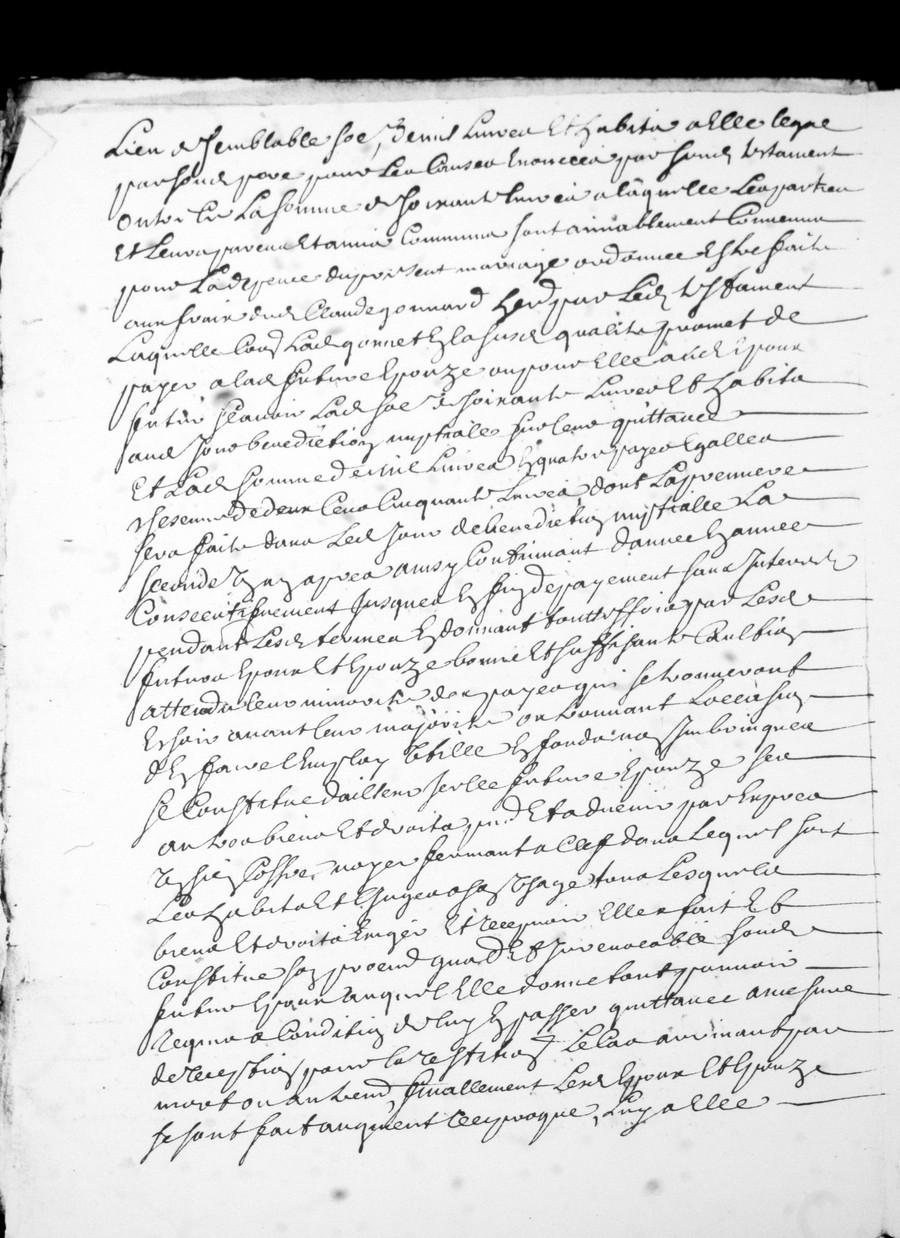 Lieu & semblable soe, de mil Livres Et habits a Elle legue
par sond pere pour Les Causes Enoncees par sond testament
outre Ce La somme de soixante Livres a laquelle Les parties
Et Leurs parens Et amis Communs sont amiablement Convenus
pour La depence du present mariage ordonnee Estre faite
aux frais dud Claude gonnard par Led testament
Laquelle Lad gonnet En la susd qualite promet de
payer a lad future Epouze ou pour Elle aud Epoux
futur scavoir Lad soe de soixante Livres Et habits
aud Jour benediction nuptialle sur leur quittance
Et Lad somme de mil Livres En quatre payes Egalles
chescune de deux Cens Cinquante Livres dont La premiere
sera faite dans Led Jour de benediction nuptialle La
seconde un an apres ainsy Continuant d'annee En annee
Consecutifvement Jusques En fin de payement sans Interest
pendant Lesd termes En donnant touteffois par Lesd
futurs Epoux Et Epouze bonne Et suffisante Caution
attendu leur minorite des payes qui se trouveront
Eschoir avant leur majorite ou trouvant loccasion
d'En faire l'Employ Utille En fondz non Imbringues
se Constitue dailleur Icelle future Epouze ses
autres biens Et droits pnd Et advenir par Expres
Un sien Coffre noyer fermant a Clef dans Lequel sont
Les habits Et linges a son Usage tous Lesquels
biens Et droits Exiger Et recepvoir Elle a fait Et
Constitue son procur gnal Et Irrevocable sond
futur Epoux auquel Elle donne tout pouvoir
requis a Condition de luy En passer quittance a mesure
de reception pour la restition Le Cas arrivant par
mort ou autrend, finallement Lesd Epoux Et Epouze
se sont fait augment reciproque, Luy a Elle